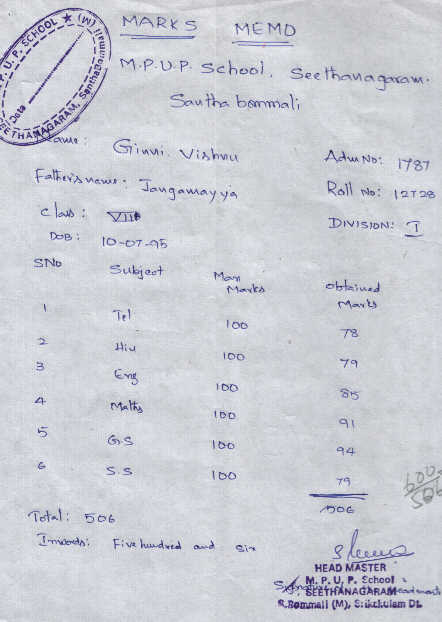 MARKS MEMO
M.P.U.P. School. Seethanagaram.
Santha bommali
U. P. SCHOOL ★ (M)
Date
SEETHANAGARAM, SanthaBommali
Name: Ginni. Vishnu Adm No: 1787
Father's name: Jangamayya Roll No: 12728
Class: VII DIVISION: I
DOB: 10-07-95
SNo Subject Max Marks obtained Marks
1 Tel 100 78
2 Hin 100 79
3 Eng 100 85
4 Maths 100 91
5 G.S 100 94
6 S.S 100 79
506
600
506
Total: 506
Inwords: Five hundred and six
HEAD MASTER
M. P. U. P. School
Signature of the Headmaster
SEETHANAGARAM
S.Bommali (M), Srikakulam Dt.